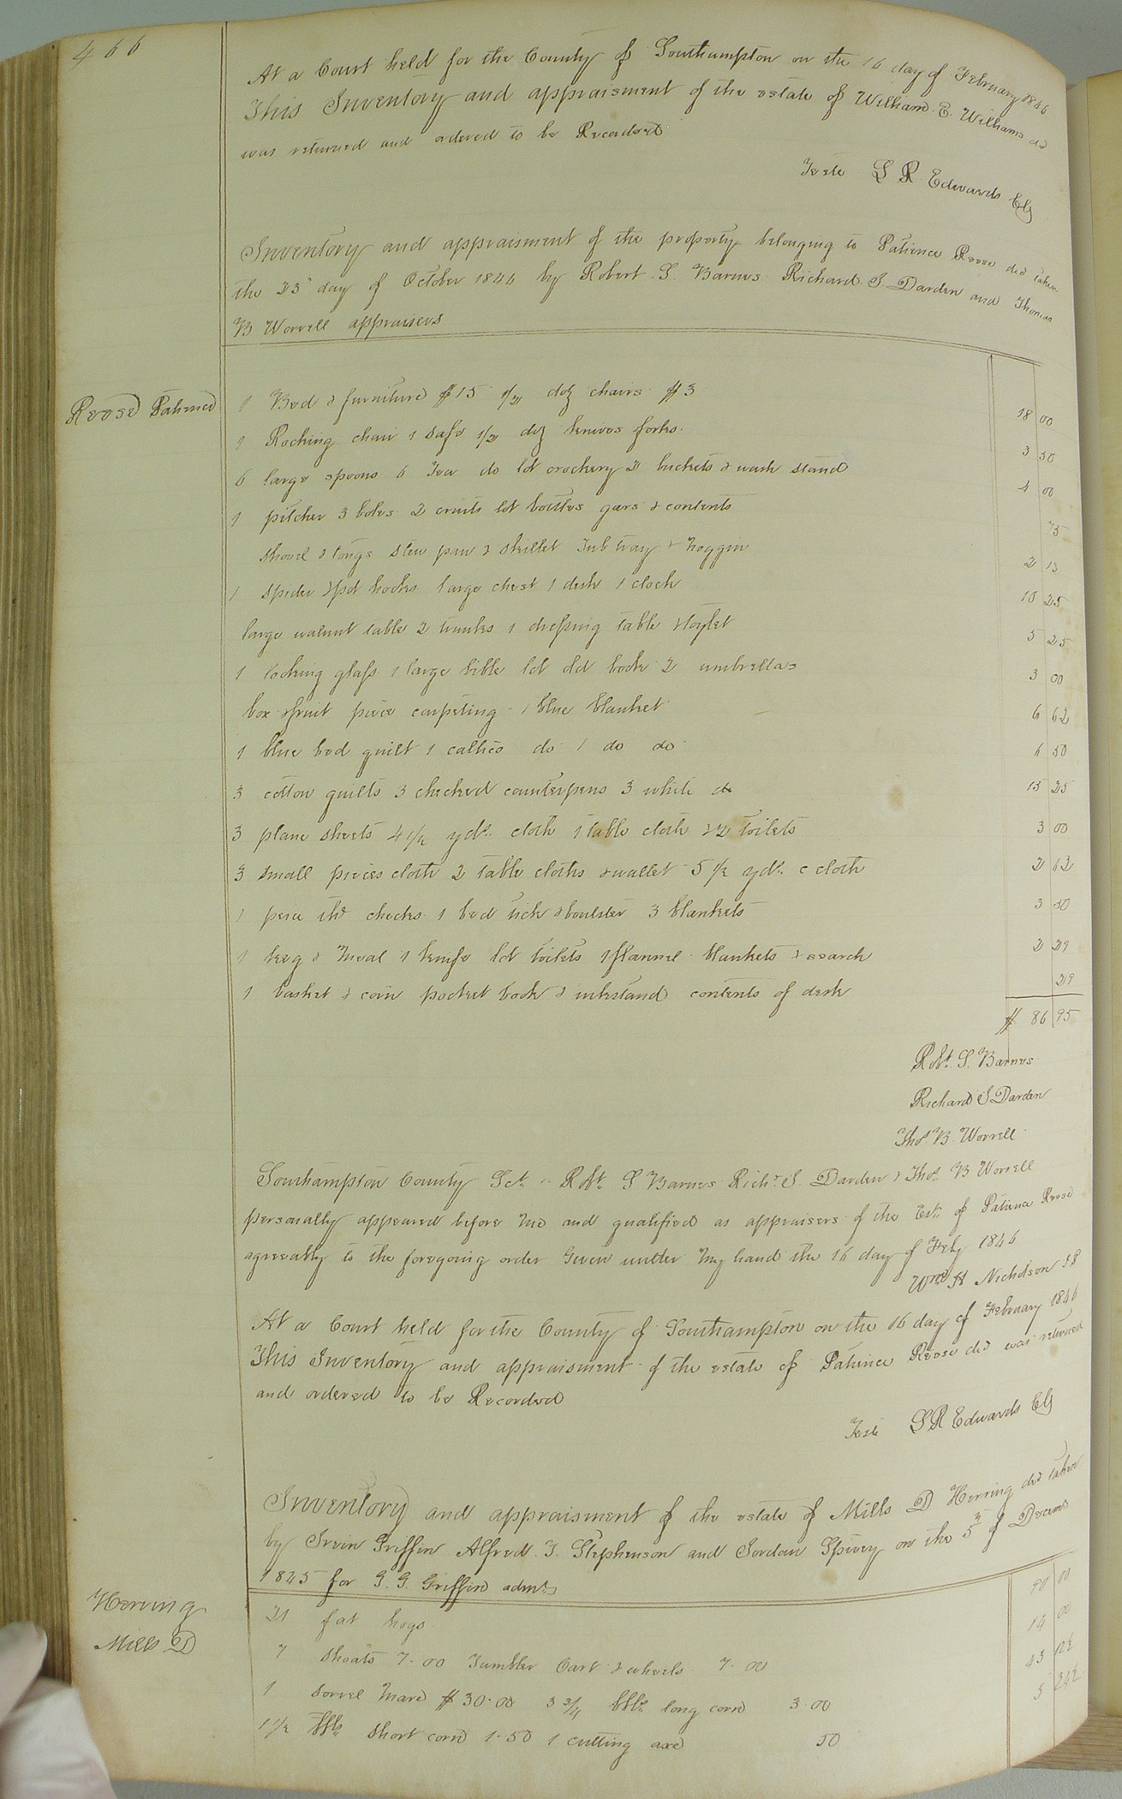 466
At a Court held for the County of Southampton on the 16 day of February 1846
This Inventory and appraisment of the estate of William E. Williams dcd
was returned and ordered to be Recorded
Teste S R Edwards Clk
Inventory and appraisment of the property belonging to Patience Reese dcd taken
the 23d day of October 1846 by Robert S. Barnes Richard S. Darden and Thomas
B Worrell appraisers
Reese Patience
1 Bed & furniture $15 1/2 doz chairs $3 18 00
1 Rocking chair 1 safe 1/2 doz knives forks. 3 50
6 large spoons 6 Tea do lot crockery 2 buckets & wash stand 4 00
1 pitcher 3 boles 2 cruits lot bottles gars & contents 75
shovel & tongs stew pan & skillet Tub tray & noggin 2 13
1 spider & pot hooks large chest 1 desk 1 clock 10 25
large walnut table 2 trunks 1 dressing table & toylet 5 25
1 looking glass 1 large bible lot old books 2 umbrellas 3 00
box & fruit piece carpeting 1 blue blanket 6 62
1 blue bed quilt 1 callico do 1 do do 6 50
3 cotton quilts 3 checked counterpens 3 white do 15 25
3 plane sheets 4 1/2 yds. cloth 1 table cloth & 2 toilets 3 00
3 small pieces cloth 2 table cloths & wallet 5 1/2 yds. c cloth 2 62
1 checks 1 bed tick & boulster 3 blankets 3 50
1 keg & meal 1 knife lot toilets 1 flannel blankets & 2 29
1 basket & corn pocket book & inkstand contents of desk 29
$ 86 95
Robt. S. Barnes
Richard S Darden
Thos B. Worrell
Southampton County Sct. Robt. S Barnes Richd S. Darden & Thos. B Worrell
personally appeared before me and qualified as appraisers of the Est. of Patience Reese
agreeably to the foregoing order Given under my hand the 16 day of Feby 1846
Wm H Nicholson
At a Court held for the County of Southampton on the 16 day of February 1846
This Inventory and appraisment of the estate of Patience Reese dcd was returned
and ordered to be Recorded
Teste S R Edwards Clk
Inventory and appraisment of the estate of Mills D Herring dcd taken
by Irvin Griffin Alfred J. Stephenson and Jordan Spivey on the 5th of
1845 for G. G. Griffin admr
Herring
Mills D
21 fat hogs 90 00
7 shoats 7.00 Tumbler Cart & wheels 7.00 14 00
1 sorrel mare $30.00 3 3/4 bbls long corn 3.00
1 1/2 bbls short corn 1.50 1 cutting axe 50